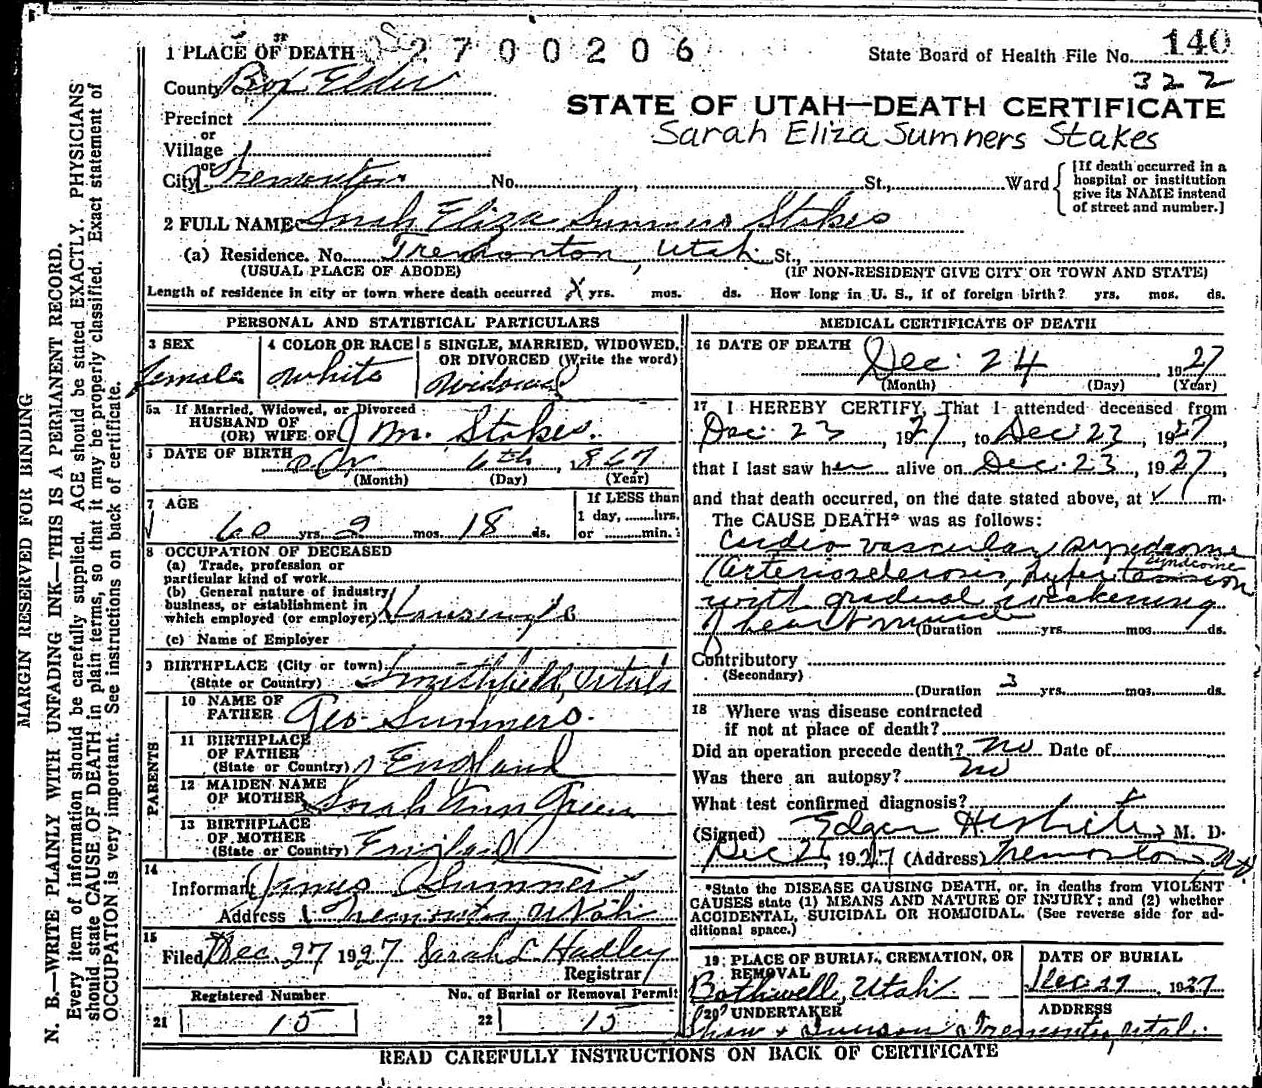 1 PLACE OF DEATH 2700206 State Board of Health File No. 140
322
County Box Elder
STATE OF UTAH—DEATH CERTIFICATE
Precinct
Sarah Eliza Sumners Stakes
or
Village
or
City Tremonton No. , St., Ward
[If death occurred in a
hospital or institution
give its NAME instead
of street and number.]
2 FULL NAME Sarah Eliza Summers Stakes
(a) Residence. No. Tremonton, Utah St.,
(USUAL PLACE OF ABODE) (IF NON-RESIDENT GIVE CITY OR TOWN AND STATE)
Length of residence in city or town where death occurred X yrs. mos. ds. How long in U. S., if of foreign birth? yrs. mos. ds.
PERSONAL AND STATISTICAL PARTICULARS
3 SEX 4 COLOR OR RACE 5 SINGLE, MARRIED, WIDOWED,
OR DIVORCED (Write the word)
female white Widowed
5a If Married, Widowed, or Divorced
HUSBAND OF
(OR) WIFE OF J M. Stakes.
6 DATE OF BIRTH Oct 6th, 1867
(Month) (Day) (Year)
7 AGE
If LESS than
1 day, hrs.
or min.
60 yrs. 2 mos. 18 ds.
8 OCCUPATION OF DECEASED
(a) Trade, profession or
particular kind of work
(b) General nature of industry
business, or establishment in
which employed (or employer) Housewife
(c) Name of Employer
9 BIRTHPLACE (City or town)
(State or Country) Smithfield, Utah
PARENTS
10 NAME OF
FATHER Geo. Summers.
11 BIRTHPLACE
OF FATHER
(State or Country) England
12 MAIDEN NAME
OF MOTHER Sarah Ann Green
13 BIRTHPLACE
OF MOTHER
(State or Country) England
14
Informant James Summers
Address Tremonton Utah
15
Filed Dec. 27 1927 Sarah L. Hadley
Registrar
Registered Number No. of Burial or Removal Permit
21 15 22 15
MEDICAL CERTIFICATE OF DEATH
16 DATE OF DEATH Dec. 24 1927
(Month) (Day) (Year)
17 I HEREBY CERTIFY, That I attended deceased from
Dec. 23, 1927, to Dec 23, 1927
that I last saw her alive on Dec. 23, 1927,
and that death occurred, on the date stated above, at m.
The CAUSE DEATH* was as follows:
Cardio vascular syndrome
syndrome
(Arteriosclerosis, hypertension
with gradual weakening
of heart muscle
(Duration yrs. mos. ds.
Contributory
(Secondary)
(Duration 3 yrs. mos. ds.
18 Where was disease contracted
if not at place of death?
Did an operation precede death? no Date of
Was there an autopsy? no
What test confirmed diagnosis?
(Signed) Edgar White, M. D.
Dec 2 , 1927 (Address) Tremonton, Ut.
*State the DISEASE CAUSING DEATH, or, in deaths from VIOLENT
CAUSES state (1) MEANS AND NATURE OF INJURY; and (2) whether
ACCIDENTAL, SUICIDAL OR HOMICIDAL. (See reverse side for ad-
ditional space.)
19 PLACE OF BURIAL, CREMATION, OR
REMOVAL
DATE OF BURIAL
Bothwell, Utah Dec 27, 1927
20 UNDERTAKER ADDRESS
Shaw & Iverson Tremonton, Utah.
READ CAREFULLY INSTRUCTIONS ON BACK OF CERTIFICATE
MARGIN RESERVED FOR BINDING
N. B.—WRITE PLAINLY WITH UNFADING INK—THIS IS A PERMANENT RECORD.
Every item of information should be carefully supplied. AGE should be stated EXACTLY. PHYSICIANS
should state CAUSE OF DEATH in plain terms, so that it may be properly classified. Exact statement of
OCCUPATION is very important. See instructions on back of certificate.